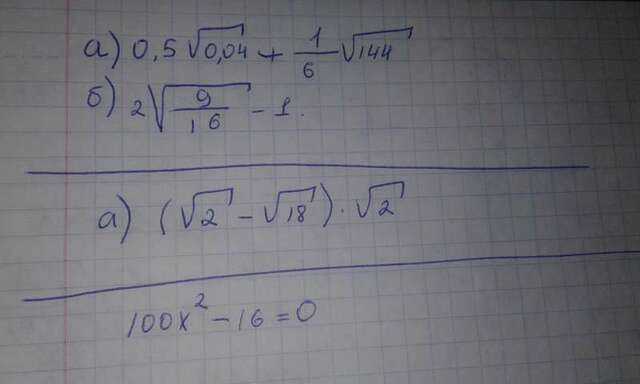 а) 0,5√0,04 + 1/6 √144
б) 2√9/16 - 1.
а) (√2 - √18) · √2
100x² - 16 = 0